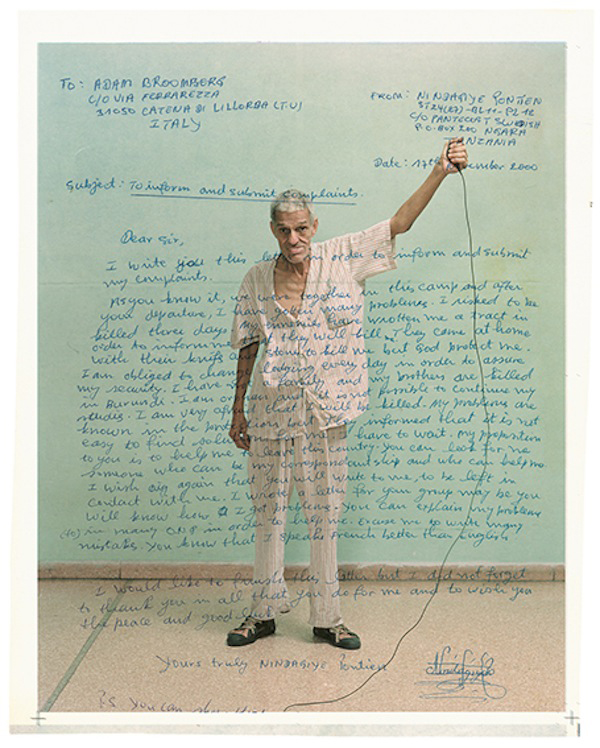 To: ADAM BROOMBERG
C/O VIA FERRAREZZA
31050 CATENA DI LILLORBA (TV)
ITALY
FROM: NINDAGIYE PONTIEN
C/O PANTECOST SWEDISH
P.O. BOX 200 NGARA
TANZANIA
Date: 17th December 2000
Subject: To inform and submit complaints.
Dear Sir,
I write you this letter in order to inform and submit
my complaints.
As you know it, we were together in this camp and after
your departure, I have gotten many problems. I risked to be
killed three days my ennemies have wrotten me a tract in
order to inform me they will kill. They come at home
with their knifs and stone to kill me but God protect me.
I am obliged to change lodging every day in order to assure
my security. I have family and my brother are killed
in Burundi. I am and it is not possible to continue my
studies. I am very afraid that I will be killed. My problems are
known in the but they informed that it is not
easy to find solution have to wait. My proposition
to you is to help me to leave this country. You can look for me
someone who can be my correspondentship and who can help me
I wish again that you will write to me, to be left in
contact with me. I wrote letter for your group may be you
will know how I get problems. You can explain my problems
(to) in many ONG in order to help me. Excuse me to write many
mistaks. You know that I speaks French better than English
I would like to finish this letter but I did not forget
to thank you in all that you do for me and to wish you
the peace and good luck
Yours truly NINDAGIYE Pontien
P.S You can